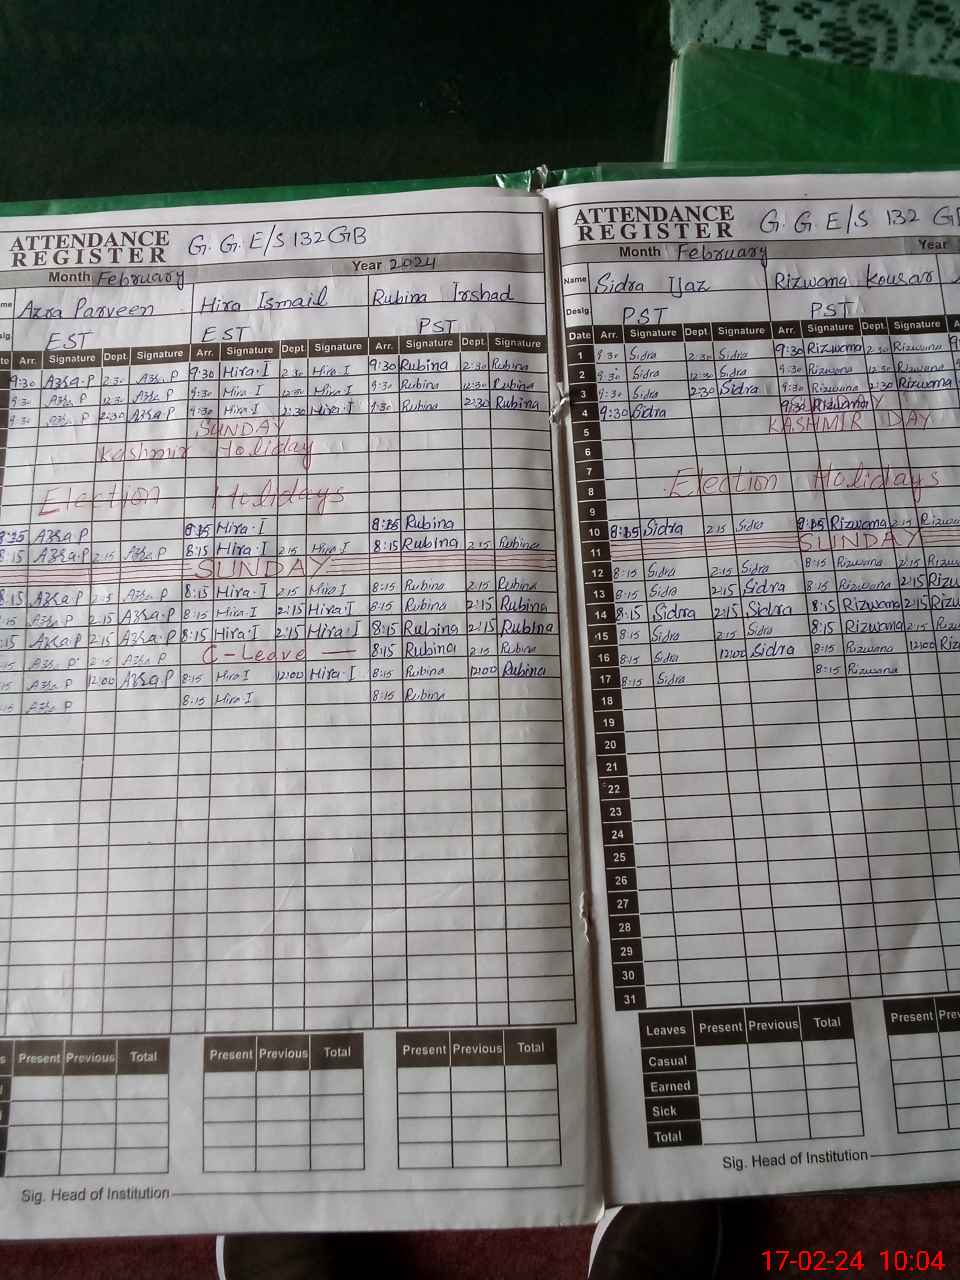 ATTENDANCE REGISTER G. G. E/S 132 GB
Month February Year 2024
Azra Parveen Hira Ismail Rubina Irshad
EST EST PST
Arr. Signature Dept. Signature Arr. Signature Dept. Signature Arr. Signature Dept. Signature
9:30 Azra.P 2:30 Azra.P 9:30 Hira.I 2:30 Hira.I 9:30 Rubina 2:30 Rubina
9:30 Azra.P 12:30 Azra.P 9:30 Hira.I 12:30 Hira.I 9:30 Rubina 12:30 Rubina
9:30 Azra.P 2:30 Azra.P 9:30 Hira.I 2:30 Hira.I 9:30 Rubina 2:30 Rubina
SUNDAY
Kashmir Holiday
Election Holidays
8:15 Azra P 8:15 Hira.I 8:15 Rubina
8:15 Azra.P 2:15 Azra.P 8:15 Hira.I 2:15 Hira.I 8:15 Rubina 2:15 Rubina
SUNDAY
8:15 Azra P 2:15 Azra.P 8:15 Hira.I 2:15 Hira.I 8:15 Rubina 2:15 Rubina
:15 Azra P 2:15 Azra.P 8:15 Hira.I 2:15 Hira.I 8:15 Rubina 2:15 Rubina
:15 Azra P 2:15 Azra.P 8:15 Hira.I 2:15 Hira.I 8:15 Rubina 2:15 Rubina
:15 Azra P 2:15 Azra P C-Leave 8:15 Rubina 2:15 Rubina
:15 Azra P 12:00 Azra P 8:15 Hira I 12:00 Hira.I 8:15 Rubina 12:00 Rubina
:15 Azra P 8:15 Hira I 8:15 Rubina
Present Previous Total Present Previous Total Present Previous Total
Sig. Head of Institution
ATTENDANCE REGISTER G. G. E/S 132 GB
Month February Year
Name Sidra Ijaz Rizwana Kousar
Desig. PST PST
Date Arr. Signature Dept. Signature Arr. Signature Dept. Signature
1 9:30 Sidra 2:30 Sidra 9:30 Rizwana 2:30 Rizwana
2 9:30 Sidra 12:30 Sidra 9:30 Rizwana 12:30 Rizwana
3 9:30 Sidra 2:30 Sidra 9:30 Rizwana 2:30 Rizwana
4 9:30 Sidra 9:30 Rizwana
5 KASHMIR DAY
6
7
8 Election Holidays
9
10 8:15 Sidra 2:15 Sidra 8:15 Rizwana 2:15 Rizwana
11 SUNDAY
12 8:15 Sidra 2:15 Sidra 8:15 Rizwana 2:15 Rizwana
13 8:15 Sidra 2:15 Sidra 8:15 Rizwana 2:15 Rizwana
14 8:15 Sidra 2:15 Sidra 8:15 Rizwana 2:15 Rizwana
15 8:15 Sidra 2:15 Sidra 8:15 Rizwana 2:15 Rizwana
16 8:15 Sidra 12:00 Sidra 8:15 Rizwana 12:00 Riz
17 8:15 Sidra 8:15 Rizwana
18
19
20
21
22
23
24
25
26
27
28
29
30
31
Leaves Present Previous Total Present
Casual
Earned
Sick
Total
Sig. Head of Institution
17-02-24 10:04